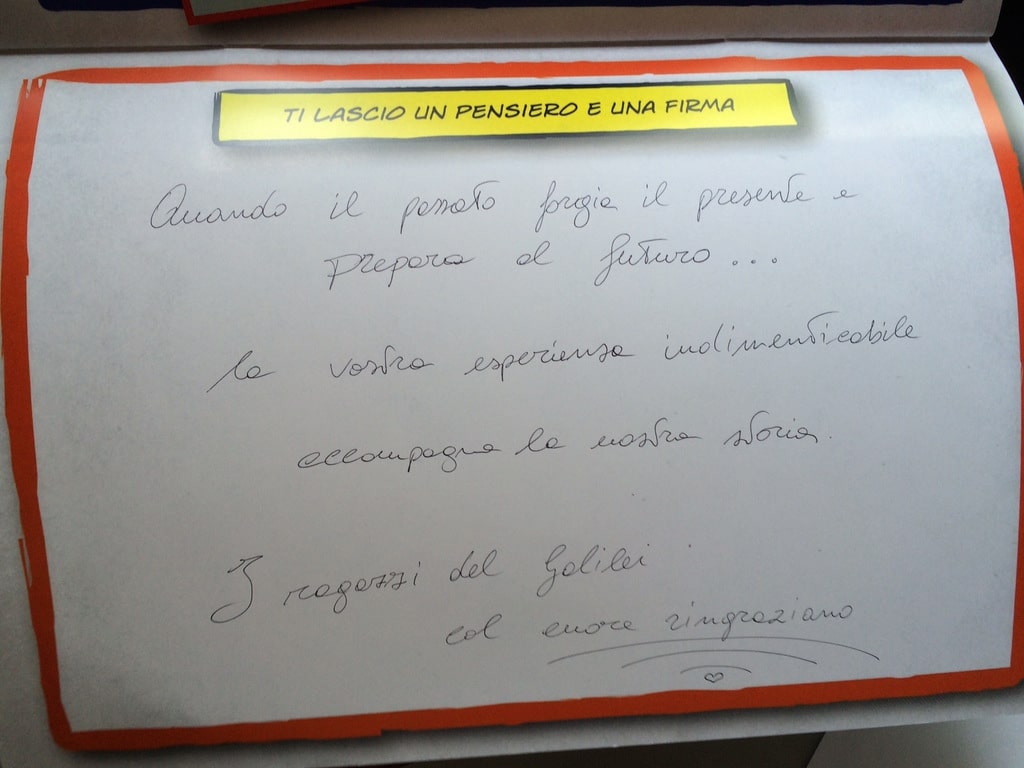 TI LASCIO UN PENSIERO E UNA FIRMA
Quando il passato forgia il presente e
prepara al futuro...
la vostra esperienza indimenticabile
accompagna la nostra storia.
I ragazzi del Galilei
col cuore ringraziano